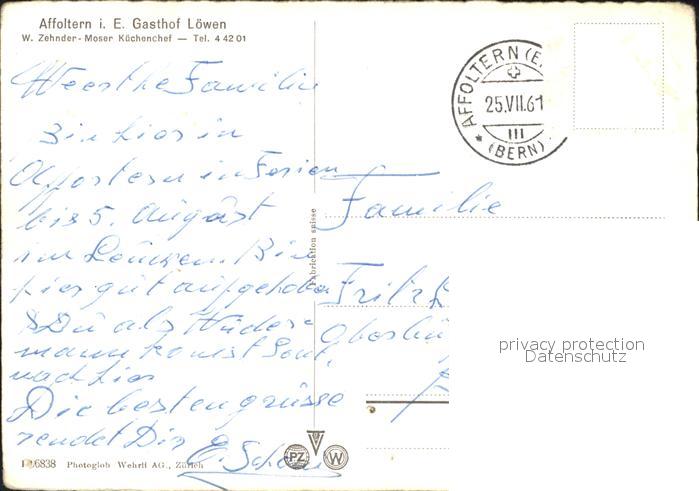 Affoltern i. E. Gasthof Löwen
W. Zehnder-Moser Küchenchef — Tel. 4 42 01
AFFOLTERN (E.
25.VII.61
III
(BERN)
Weerthe Familie
Bin hier in
Affostern in Ferien
bis 5. August
im Leuwen. Bin
hier gut aufgehoben
Du als
mann komst
nach hier
Die besten grüsse
sendet Dir
E.
Familie
Fritz
Fabrication suisse
6838 Photoglob Wehrli AG., Zürich
PZ W
privacy protection
Datenschutz